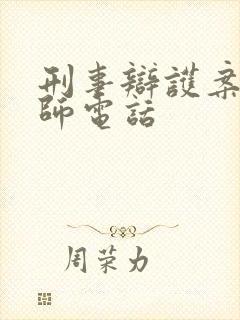 刑事辯護案
師電話
周荣力